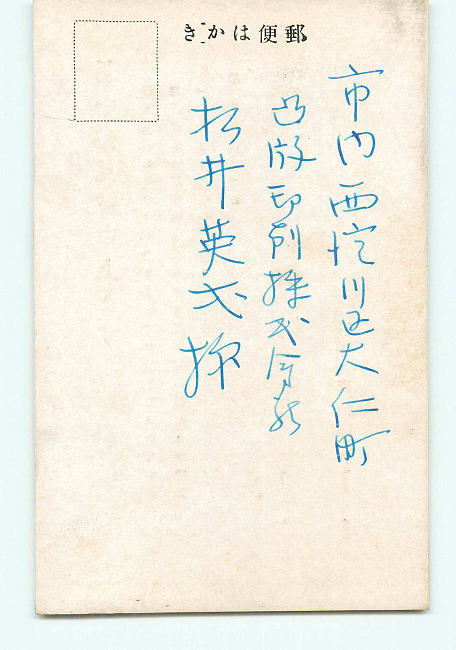 郵便はがき
市内西淀川区大仁町
凸版印刷株式会社
松井英弌様